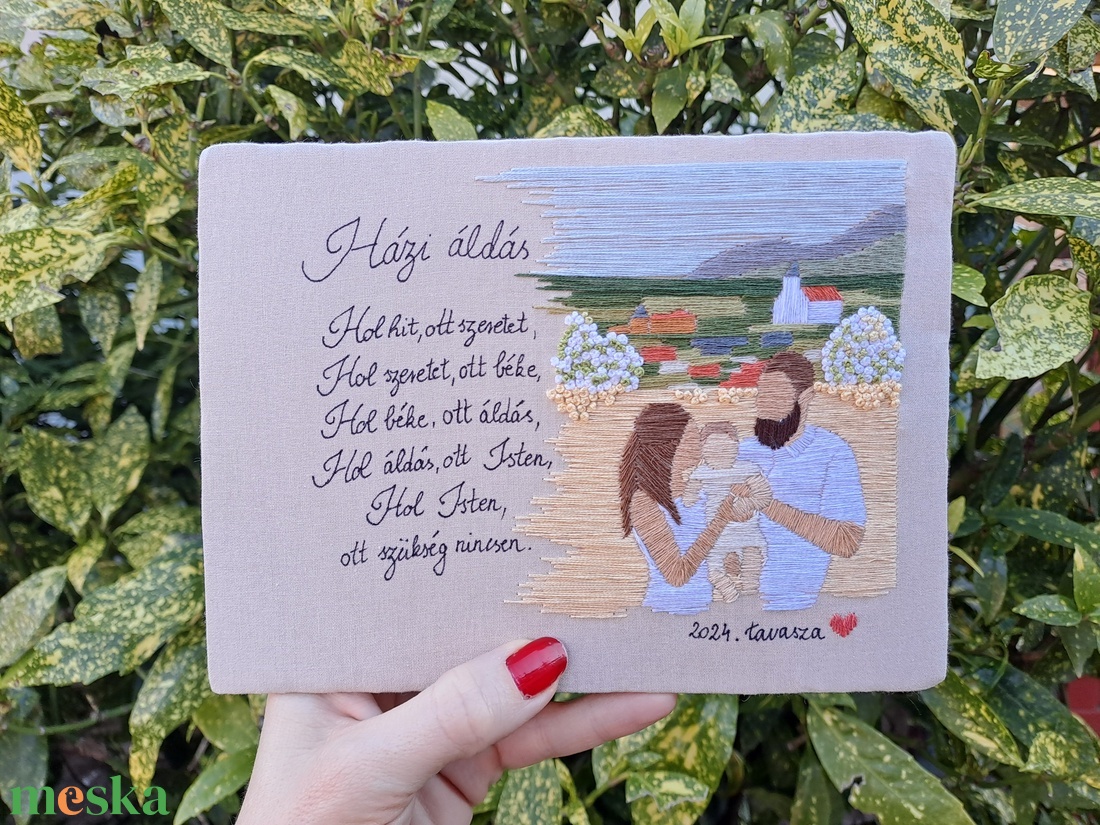 Házi áldás
Hol hit, ott szeretet,
Hol szeretet, ott béke,
Hol béke, ott áldás,
Hol áldás, ott Isten,
Hol Isten,
ott szükség nincsen.
2024. tavasza
meska